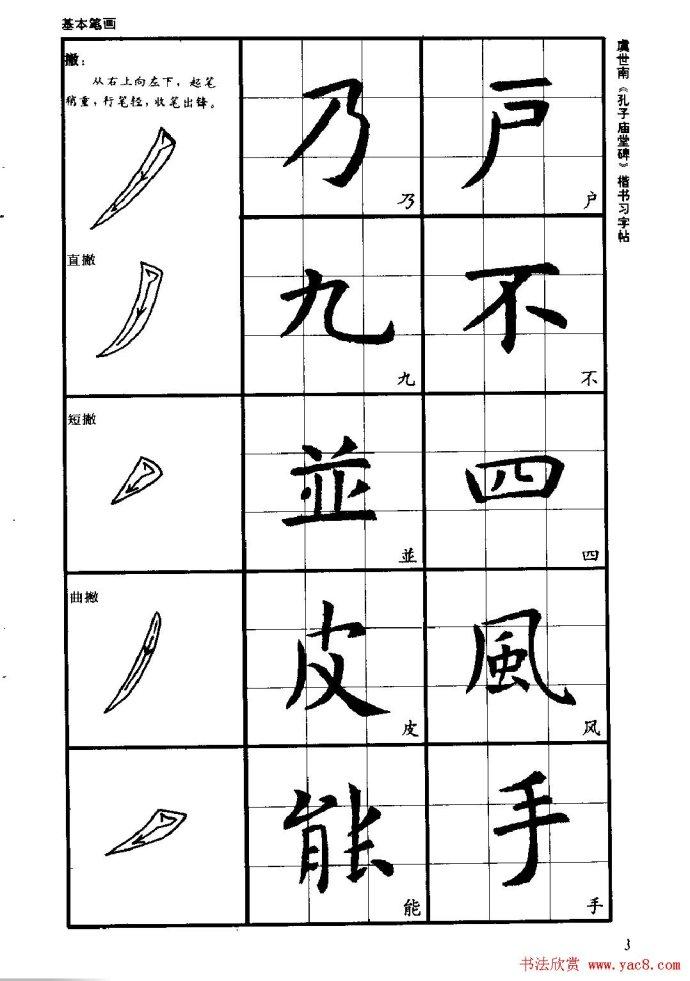 基本笔画
虞世南《孔子庙堂碑》楷书习字帖
撇：
从右上向左下，起笔
稍重，行笔轻，收笔出锋。
乃 戶
乃 户
直撇
九 不
九 不
短撇
並 四
並 四
曲撇
皮 風
皮 风
能 手
能 手
3
书法欣赏 www.yac8.com